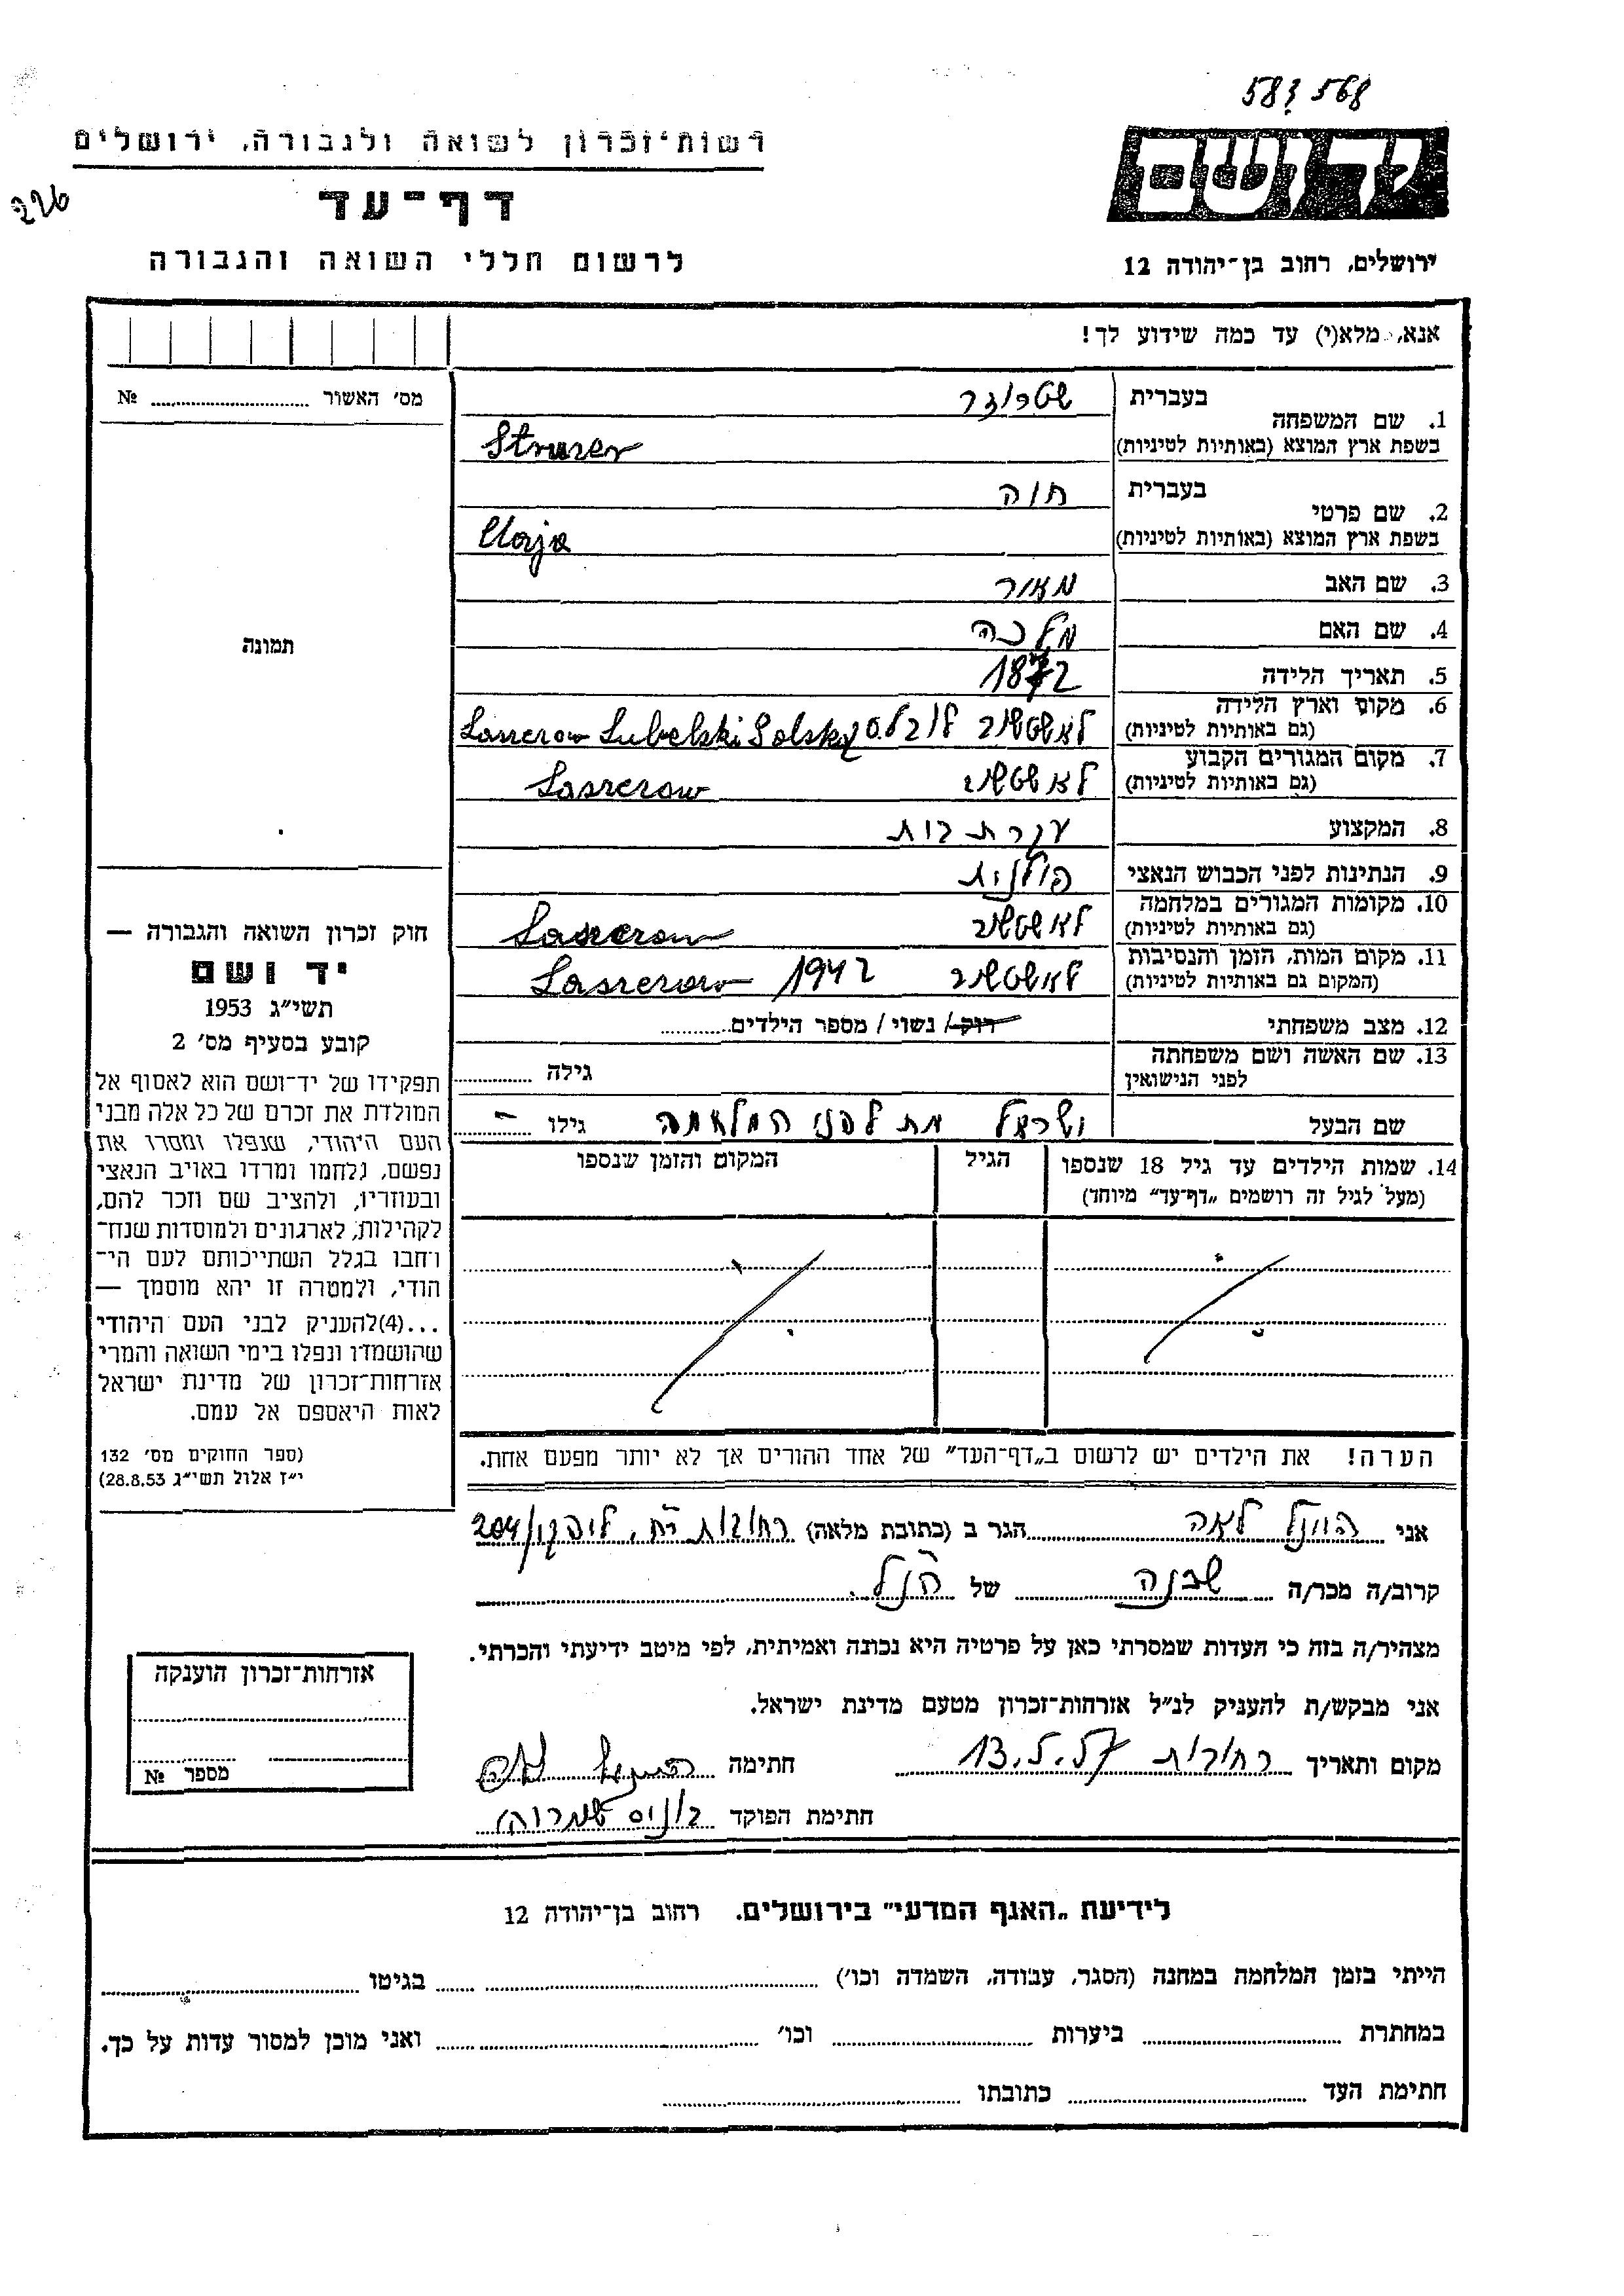 583 568
יד ושם
רשות־זכרון לשואה ולגבורה, ירושלים
דף־עד
226
לרשום חללי השואה והגבורה
ירושלים, רחוב בן־יהודה 12
אנא, מלא(י) עד כמה שידוע לך!
מס׳ האשור № 
1. שם המשפחה
בעברית
בשפת ארץ המוצא (באותיות לטיניות) Struzer
2. שם פרטי
בעברית חוה
בשפת ארץ המוצא (באותיות לטיניות) Chaja
3. שם האב מאיר
4. שם האם מלכה
5. תאריך הלידה 1872
6. מקום וארץ הלידה
(גם באותיות לטיניות) לאשטשוב Laszczow Lubelski Polska
7. מקום המגורים הקבוע
(גם באותיות לטיניות) לאשטשוב Laszczow
8. המקצוע עקרת בית
9. הנתינות לפני הכבוש הנאצי פולנית
10. מקומות המגורים במלחמה
(גם באותיות לטיניות) לאשטשוב Laszczow
11. מקום המות, הזמן והנסיבות
(המקום גם באותיות לטיניות) לאשטשוב 1942 Laszczow
12. מצב משפחתי רוק/ נשוי/ מספר הילדים
13. שם האשה ושם משפחתה
לפני הנישואין גילה
שם הבעל ישראל מת לפני המלחמה גילו -
14. שמות הילדים עד גיל 18 שנספו
(מעל לגיל זה רושמים „דף־עד” מיוחד)
הגיל
המקום והזמן שנספו
הערה! את הילדים יש לרשום ב„דף־העד” של אחד ההורים אך לא יותר מפעם אחת.
תמונה
חוק זכרון השואה והגבורה —
יד ושם
תשי״ג 1953
קובע בסעיף מס׳ 2
תפקידו של יד־ושם הוא לאסוף אל
המולדת את זכרם של כל אלה מבני
העם היהודי, שנפלו ומסרו את
נפשם, נלחמו ומרדו באויב הנאצי
ובעוזריו, ולהציב שם וזכר להם,
לקהילות, לארגונים ולמוסדות שנח־
רחבו בגלל השתייכותם לעם הי־
הודי, ולמטרה זו יהא מוסמך —
...(4)להעניק לבני העם היהודי
שהושמדו ונפלו בימי השואה והמרי
אזרחות־זכרון של מדינת ישראל
לאות היאספם אל עמם.
(ספר החוקים מס׳ 132
י״ז אלול תשי״ג 28.8.53)
אני לאה הגר ב (כתובת מלאה) רחובות 204/
קרוב/ה מכר/ה שכנה של הנ״ל.
מצהיר/ה בזה כי העדות שמסרתי כאן על פרטיה היא נכונה ואמיתית, לפי מיטב ידיעתי והכרתי.
אני מבקש/ת להעניק לנ״ל אזרחות־זכרון מטעם מדינת ישראל.
מקום ותאריך רחובות 13.5.57 חתימה
חתימת הפוקד
אזרחות־זכרון הוענקה
מספר №
לידיעת „האגף המדעי” בירושלים. רחוב בן־יהודה 12
הייתי בזמן המלחמה במחנה (הסגר, עבודה, השמדה וכו׳) בגיטו
במחתרת ביערות וכו׳ ואני מוכן למסור עדות על כך.
חתימת העד כתובתו